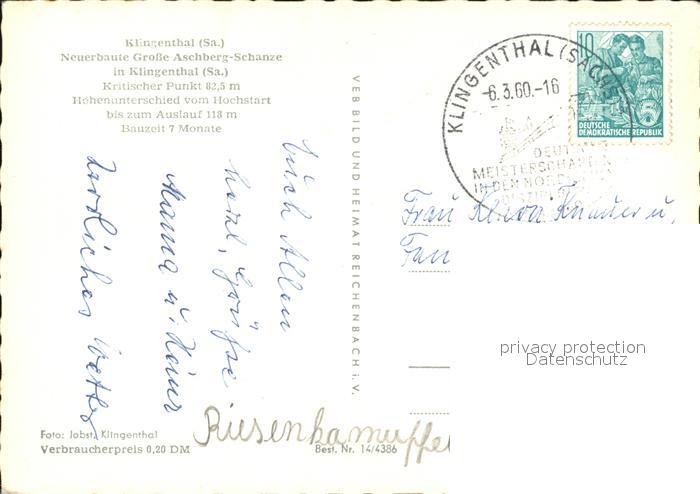 Klingenthal (Sa.)
Neuerbaute Große Aschberg-Schanze
in Klingenthal (Sa.)
Kritischer Punkt 82,5 m
Höhenunterschied vom Hochstart
bis zum Auslauf 118 m
Bauzeit 7 Monate
Euch Allen
herzl. Grüsse
Mama u. Heinz
herrliches Wetter
Riesenkamuffel
Foto: Jobst, Klingenthal
Verbraucherpreis 0,20 DM
Best. Nr. 14/4386
VEB BILD UND HEIMAT REICHENBACH i. V.
KLINGENTHAL (SACHS
-6.3.60.-16
DEUT
MEISTERSCHAFTEN
IN DEN NORD
10
5
DEUTSCHE
DEMOKRATISCHE REPUBLIK
Frau Klara Knauer u.
Fam
privacy protection
Datenschutz